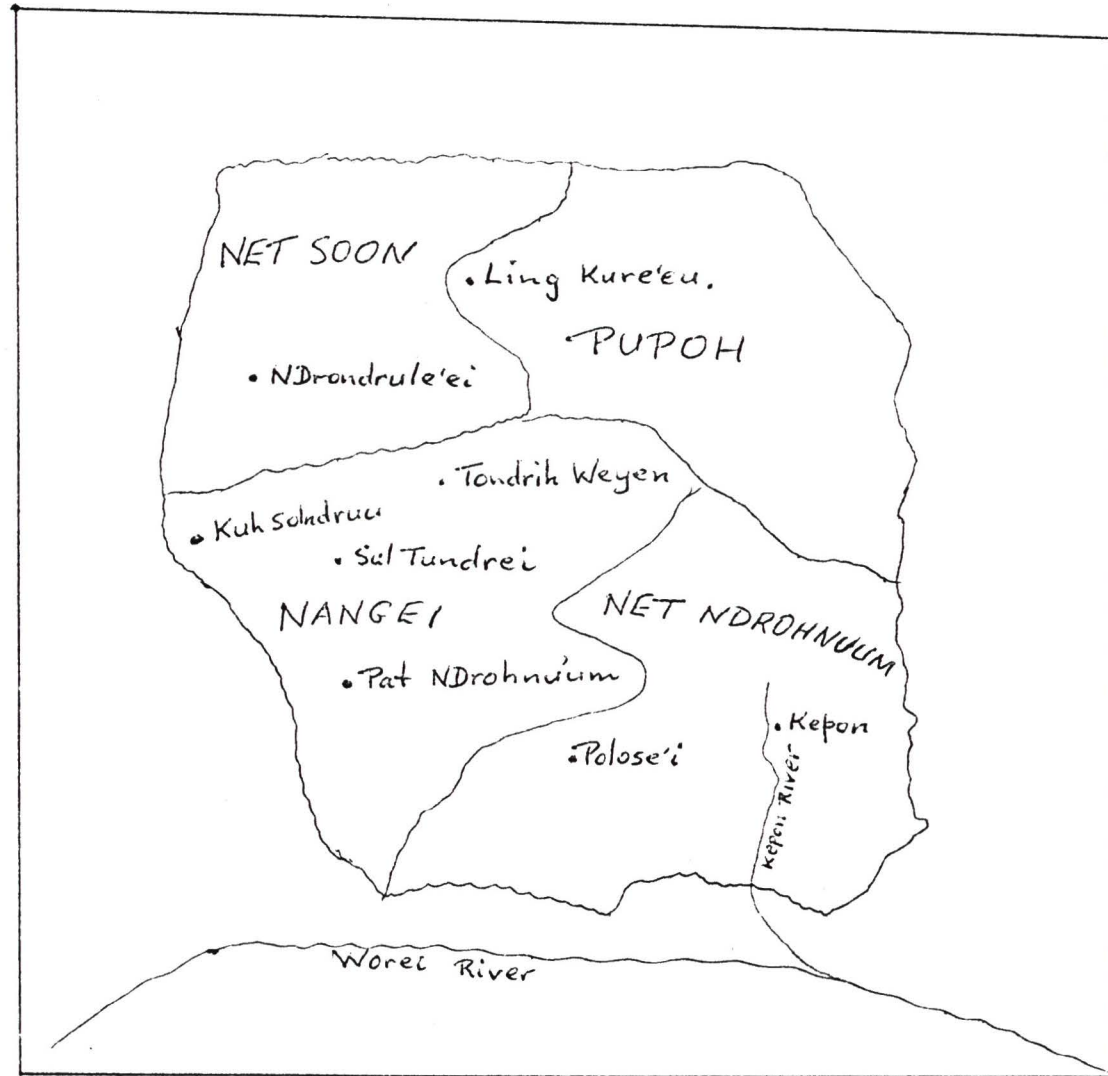 NET SOON
Ling Kure'eu.
PUPOH
NDrondrule'ei
Tondrih Weyen
Kuh Solndruu
Sul Tundrei
NANGEI
NET NDROHNUUM
Pat NDrohnu'um
Kepon
Polose'i
Kepon River
Worei River